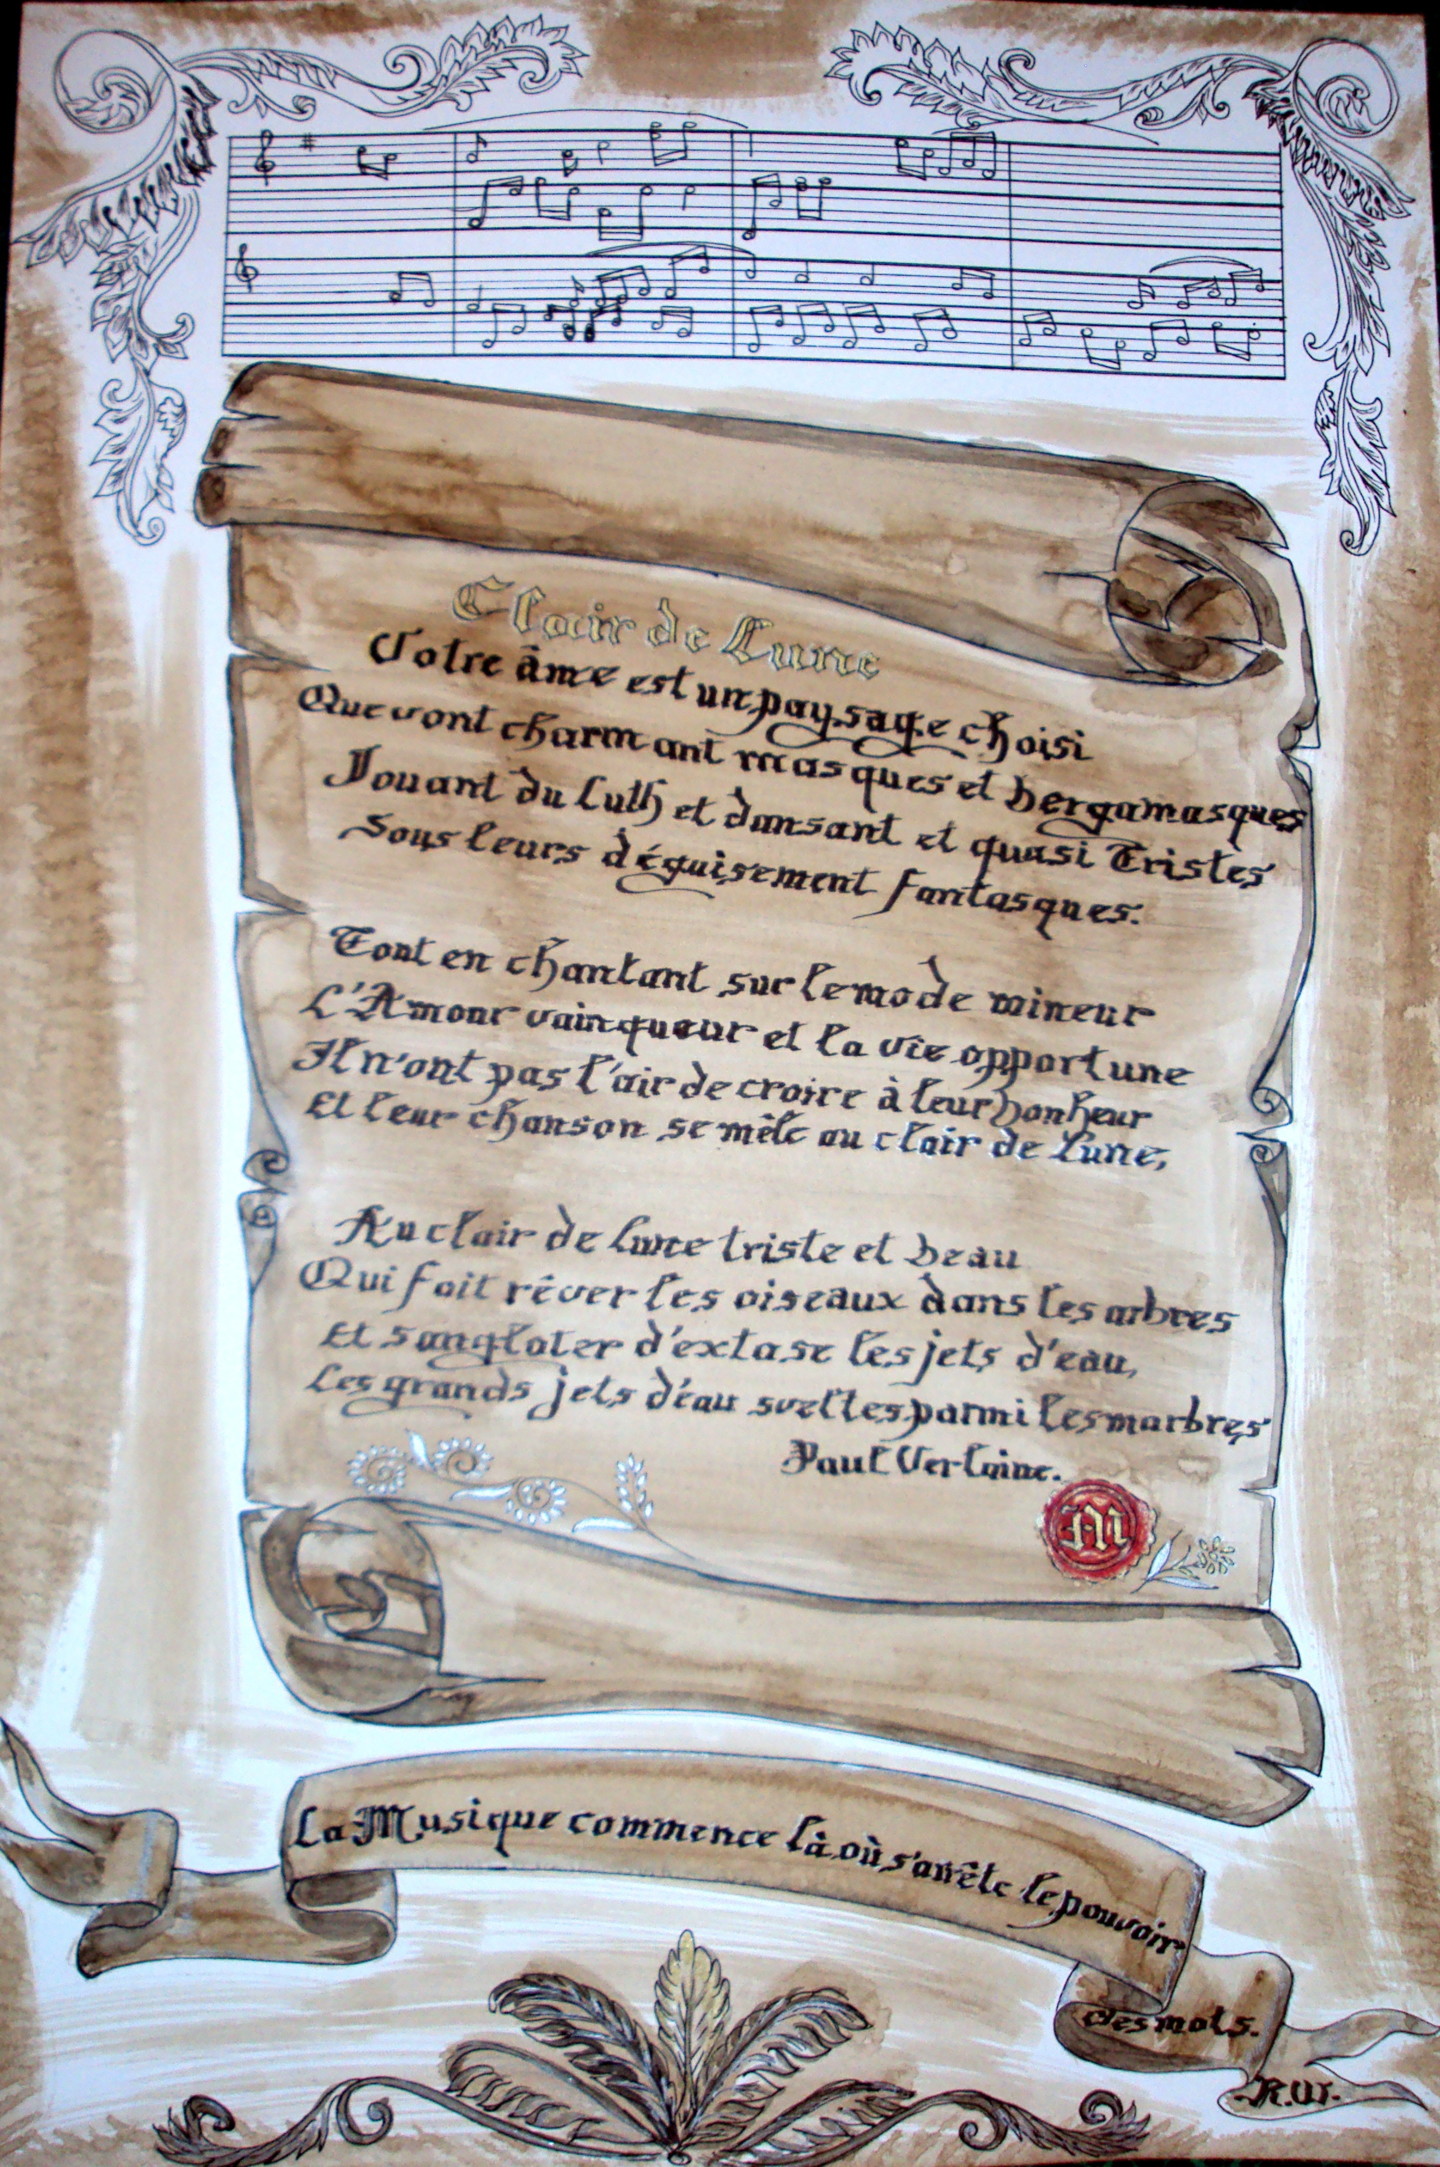 Clair de Lune
Votre âme est un paysage choisi
Que vont charmant masques et bergamasques
Jouant du luth et dansant et quasi Tristes
Sous leurs déguisement fantasques.
Tout en chantant sur le mode mineur
L'Amour vainqueur et la vie opportune
Il n'ont pas l'air de croire à leur bonheur
Et leur chanson se mêle au clair de lune,
Au clair de lune triste et beau
Qui fait rêver les oiseaux dans les arbres
Et sangloter d'extase les jets d'eau,
Les grands jets d'eau sveltes parmi les marbres
Paul Verlaine.
M
La Musique commence là où s'arrête le pouvoir
des mots.
R.W.